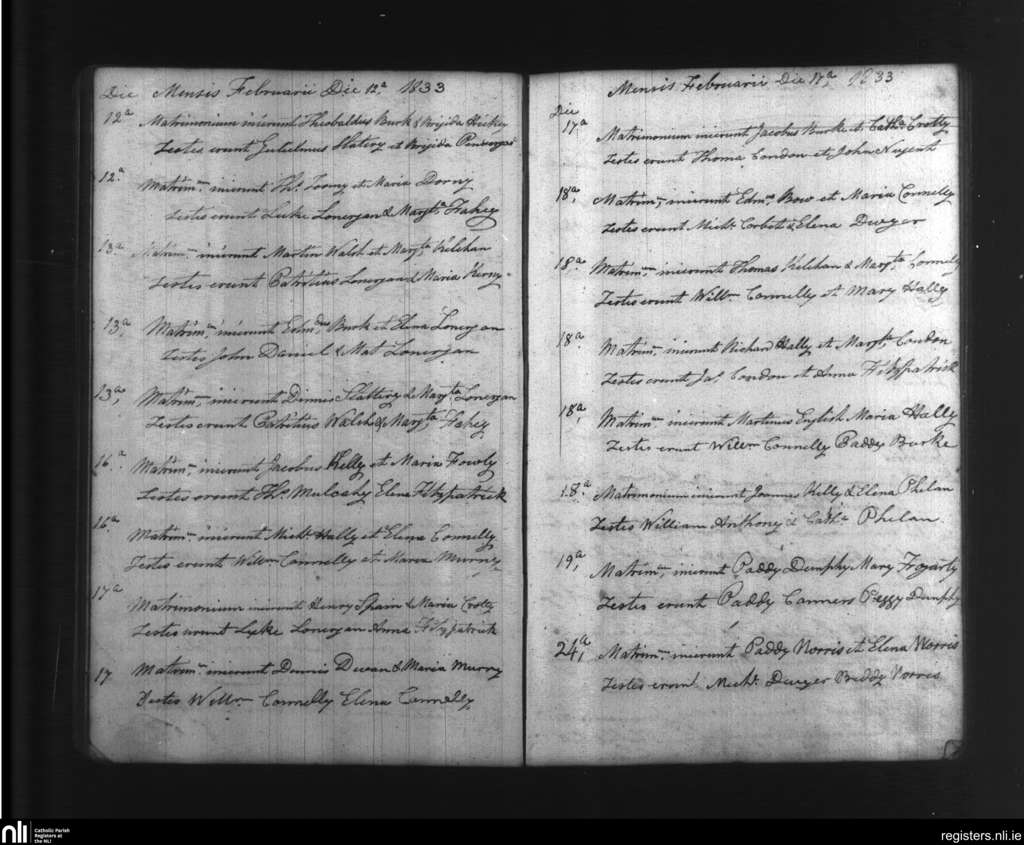 Die Mensis Februarii Die 12a 1833
12a Matrimonium inierunt Theobaldus Burk & Brijida Hickey
Testes erunt Gulielmus Slattery et Brijida
12a Matrim:m inierunt Ths Toomy et Maria Dorny
Testes erunt Luke Lonergan & Margta Fahey
13a Matrim:m inierunt Martin Walsh et Margta Kelehan
Testes erunt Patritius Lonergan & Maria Kerny
13a, Matrim:m inierunt Edmdus Burk et Elena Lonergan
Testes John Daniel & Mat Lonergan
13a, Matrim:m inierunt Dinnis Slattery & Margta Lonergan
Testes erunt Patritius Walsh & Margta Fahey
16.a Matrim:m inierunt Jacobus Kelly et Maria Fowly
Testes erunt Ths Mulcahy Elena Fitzpatrick
16a Matrim:m inierunt Michl Hally et Elena Connelly
Testes erunt Willm Connelly et Maria Murry
17a Matrimonium inierunt Henry Spain & Maria Crotty
Testes erunt Luke Lonergan Anna Fitzpatrick
17 Matrim:m inierunt Dennis Dwan & Maria Murry
Testes Willm Connelly Elena Connelly
Mensis Februarii Die 17a, 1833
Die
17a Matrimonium inierunt Jacobus Burke et Catha Crotty
Testes erunt Thoma Condon et John Nugent
18a, Matrim:m inierunt Edmd Bow et Maria Connelly
Testes erunt Michl Corbet & Elena Dwyer
18.a Matrim:m inierunt Thomas Kelehan & Margta Connelly
Testes erunt Willm Connelly et Mary Hally
18a. Matrim:m inierunt Richard Hally et Margta Condon
Testes erunt Jas Condon et Anna Fitzpatrick
18a, Matrim:m inierunt Martinus English Maria Hally
Testes erunt Willm Connelly Paddy Burke
18.a Matrimonium inierunt Joannes Kelly & Elena Phelan
Testes William Anthony & Catha Phelan
19a, Matrim:m inierunt Paddy Dunphy Mary Fogarty
Testes erunt Paddy Conners Peggy Dunphy
24a, Matrim:m inierunt Paddy Norris et Elena Norris
Testes erunt Michl Dwyer Biddy Norris
nli Catholic Parish
Registers at
the NLI
registers.nli.ie